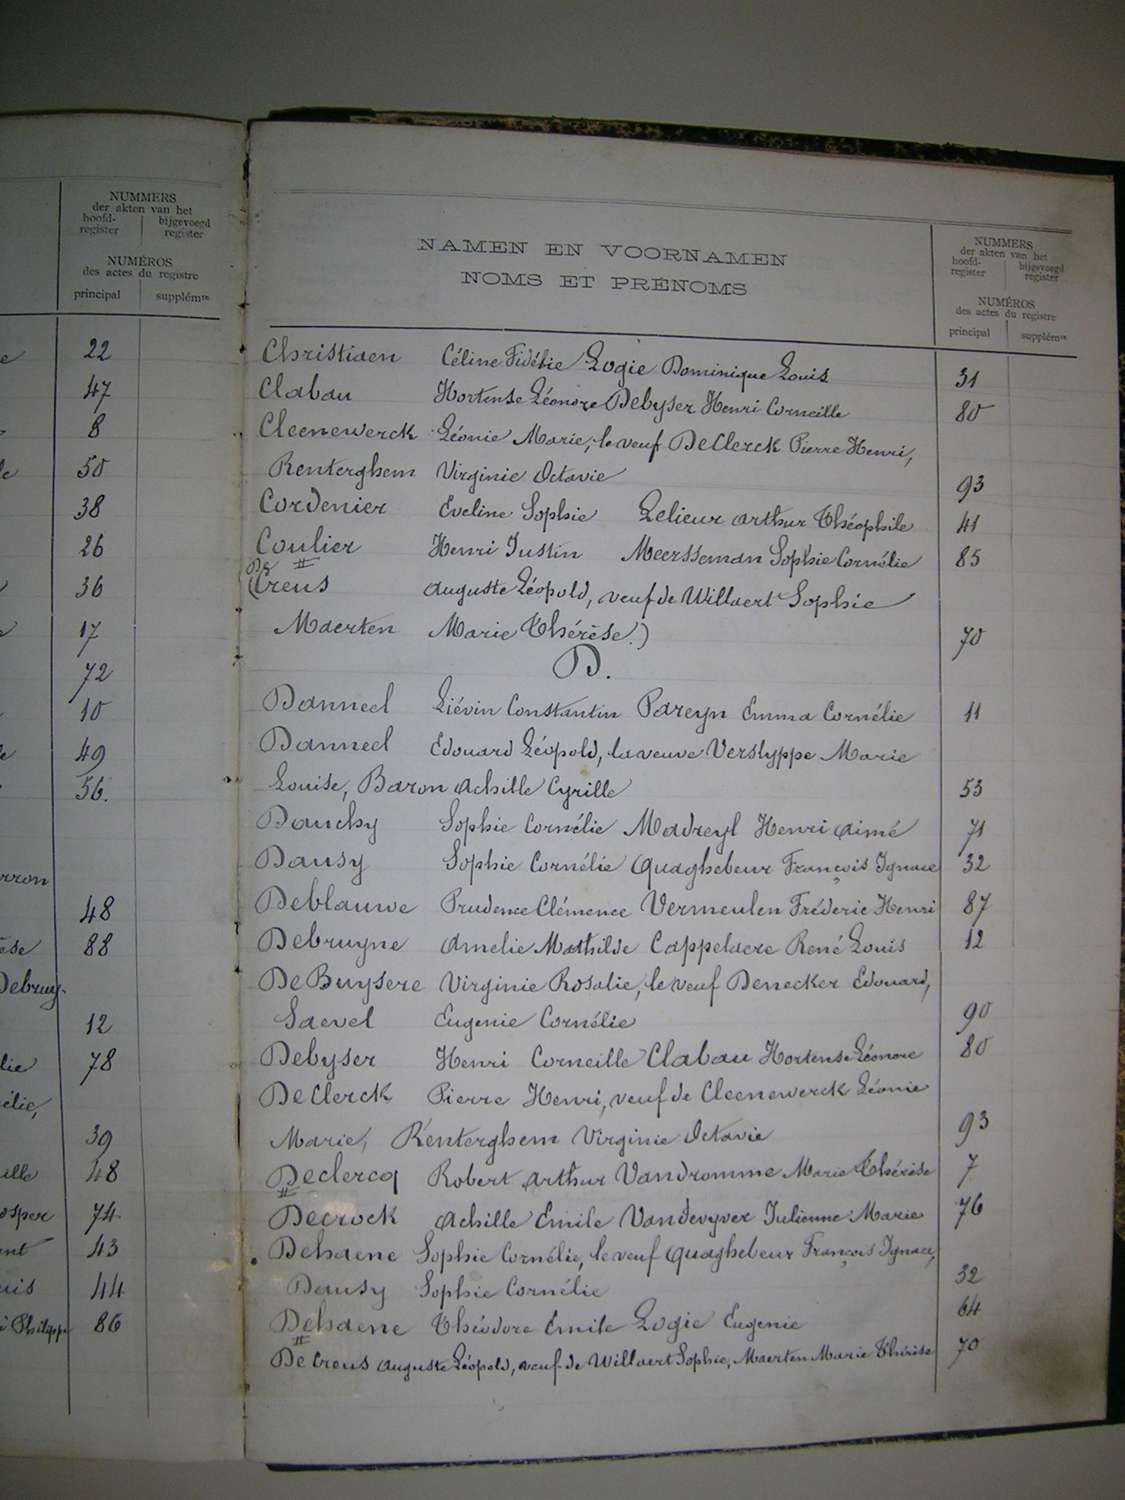 NUMMERS
der akten van het
hoofd-
register
bijgevoegd
register
NUMÉROS
des actes du registre
principal
supplém^re
22
47
8
50
38
26
36
17
72
10
49
56.
48
88
Debruy-
12
78
39
48
74
43
44
Philippe 86
NAMEN EN VOORNAMEN
NOMS ET PRÉNOMS
NUMMERS
der akten van het
hoofd-
register
bijgevoegd
register
NUMÉROS
des actes du registre
principal
supplém^re
Christiaen Céline Fidélie Logie Dominique Louis 31
Clabau Hortense Léonore Debyser Henri Corneille 80
Cleenewerck Léonie Marie, le veuf DeClerck Pierre Henri,
Renterghem Virginie Octavie 93
Cordenier Eveline Sophie Lelieur Arthur Théophile 41
Coulier Henri Justin Meersseman Sophie Cornélie 85
De
(Creus Auguste Léopold, veuf de Willaert Sophie
Maerten Marie Thérèse.) 70
D.
Danneel Liévin Constantin Pareyn Emma Cornélie 11
Danneel Edouard Léopold, la veuve Verslyppe Marie
Louise, Baron Achille Cyrille 53
Dauchy Sophie Cornélie Madreyl Henri Aimé 71
Dausy Sophie Cornélie Quaghebeur François Ignace 32
Deblauwe Prudence Clémence Vermeulen Fréderic Henri 87
Debruyne Amelie Mathilde Cappelaere René Louis 12
DeBuysere Virginie Rosalie, le veuf Denecker Edouard,
Saevel Eugenie Cornélie 90
Debyser Henri Corneille Clabau Hortense Léonore 80
DeClerck Pierre Henri, veuf de Cleenewerck Léonie
Marie, Renterghem Virginie Octavie 93
Declercq Robert Arthur Vandromme Marie Thérèse 7
Decrock Achille Emile Vandevyver Julienne Marie 76
Dehaene Sophie Cornélie, le veuf Quaghebeur François Ignace,
Dausy Sophie Cornélie 32
Dehaene Théodore Emile Logie Eugenie 64
De Creus Auguste Léopold, veuf de Willaert Sophie, Maerten Marie Thérèse 70